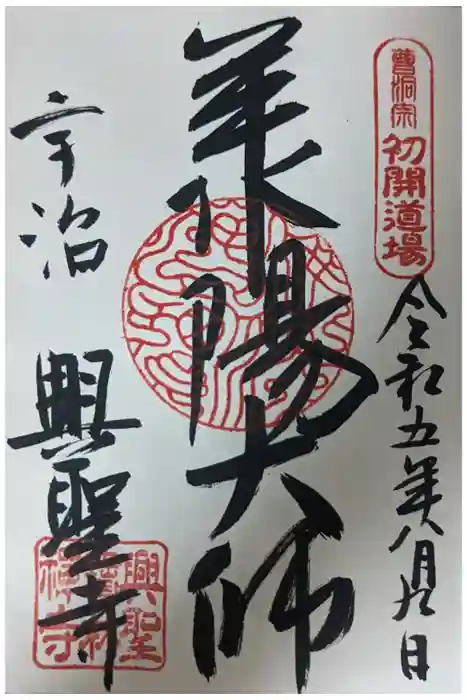 曹洞宗
初開道場
令和五年八月九日
承陽大師
宇治
興聖寺
興聖
禪寺